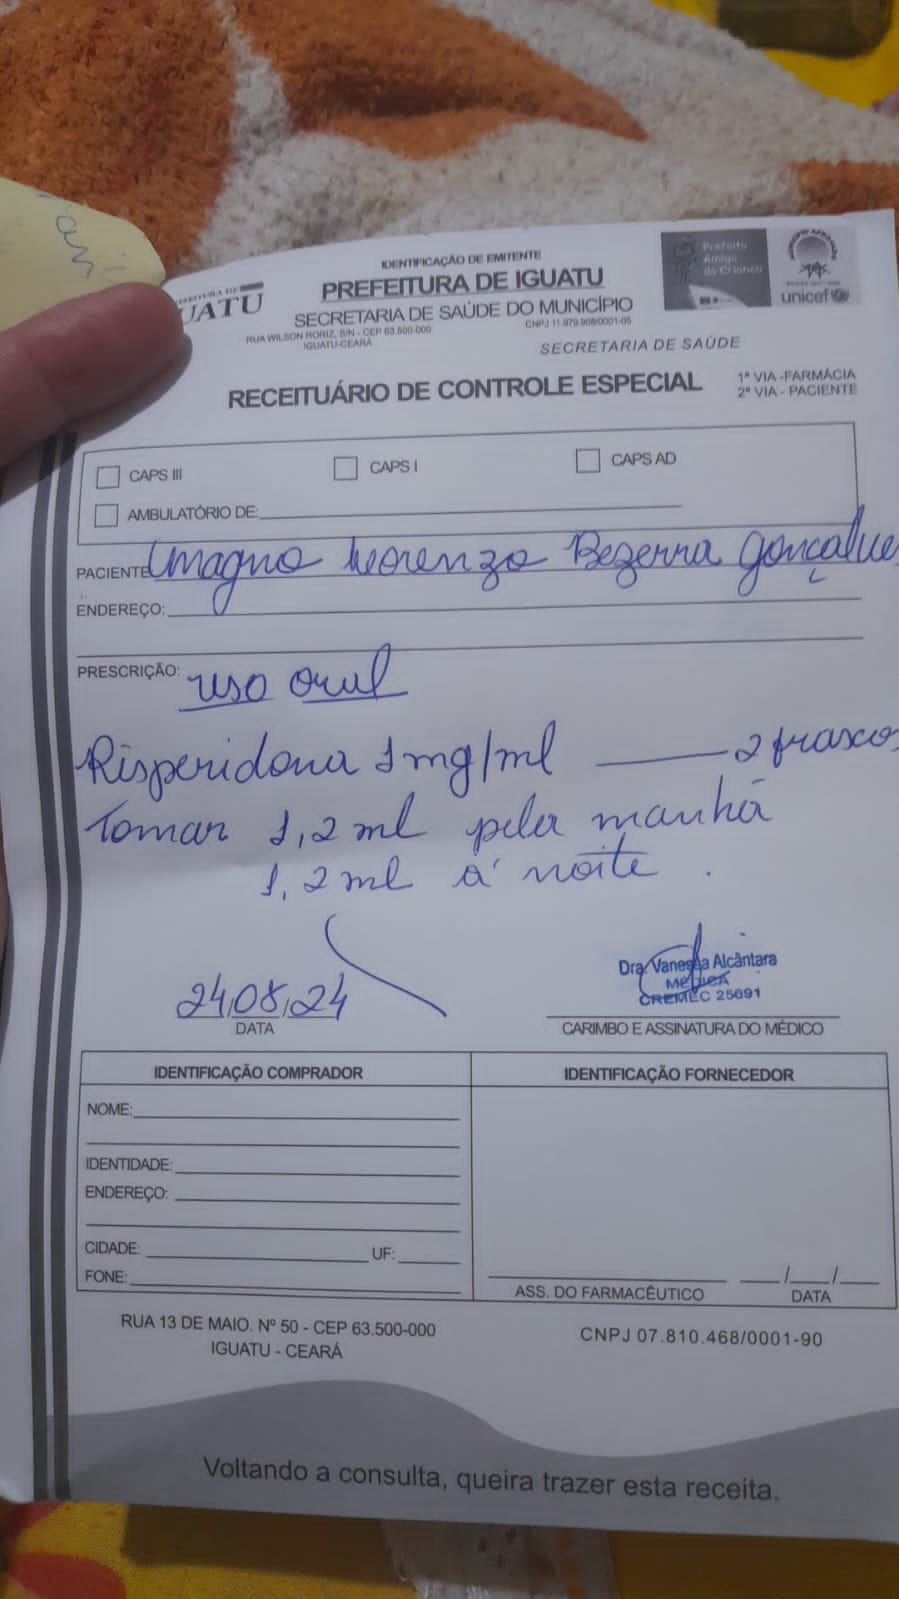 an
UATU
IDENTIFICAÇÃO DE EMITENTE
PREFEITURA DE IGUATU
SECRETARIA DE SAÚDE DO MUNICÍPIO
RUA WILSON RORIZ, S/N - CEP 63.500-000
CNPJ 11.979.908/0001-05
IGUATU-CEARÁ
SECRETARIA DE SAÚDE
Prefeito
Amigo
da Criança
unicef
RECEITUÁRIO DE CONTROLE ESPECIAL
1ª VIA -FARMÁCIA
2ª VIA - PACIENTE
CAPS III CAPS I CAPS AD
AMBULATÓRIO DE:
PACIENTE Magno Lorenzo Bezerra Gonçalves
ENDEREÇO:
PRESCRIÇÃO: uso oral
Risperidona 1mg/ml 2 frascos
Tomar 1,2 ml pela manhã
1,2 ml á noite.
24/08/24
DATA
Dra. Vanessa Alcântara
MÉDICA
CREMEC 25691
CARIMBO E ASSINATURA DO MÉDICO
IDENTIFICAÇÃO COMPRADOR
NOME:
IDENTIDADE:
ENDEREÇO:
CIDADE: UF:
FONE:
IDENTIFICAÇÃO FORNECEDOR
ASS. DO FARMACÊUTICO
DATA
RUA 13 DE MAIO. Nº 50 - CEP 63.500-000
IGUATU - CEARÁ
CNPJ 07.810.468/0001-90
Voltando a consulta, queira trazer esta receita.